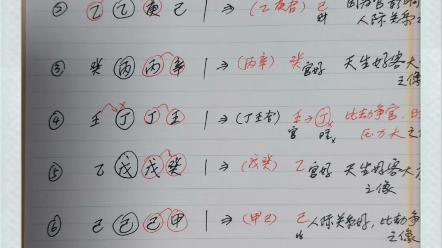 ② 乙 乙 庚 己 | ⇒ (乙庚合) 己 因为官影响
财 人际关系
③ 癸 丙 丙 辛 | ⇒ (丙辛) 癸 天生好客大
官好 之像
④ 壬 丁 丁 壬 | ⇒ (丁壬合) 壬 → 丁 比劫争官,
官 旺 压力大之
⑤ 乙 戊 戊 癸 | ⇒ (戊癸) 乙 官好 天生好客大
之像
⑥ 己 己 己 甲 | ⇒ (甲己) 己 人际关系好,比劫争
之像